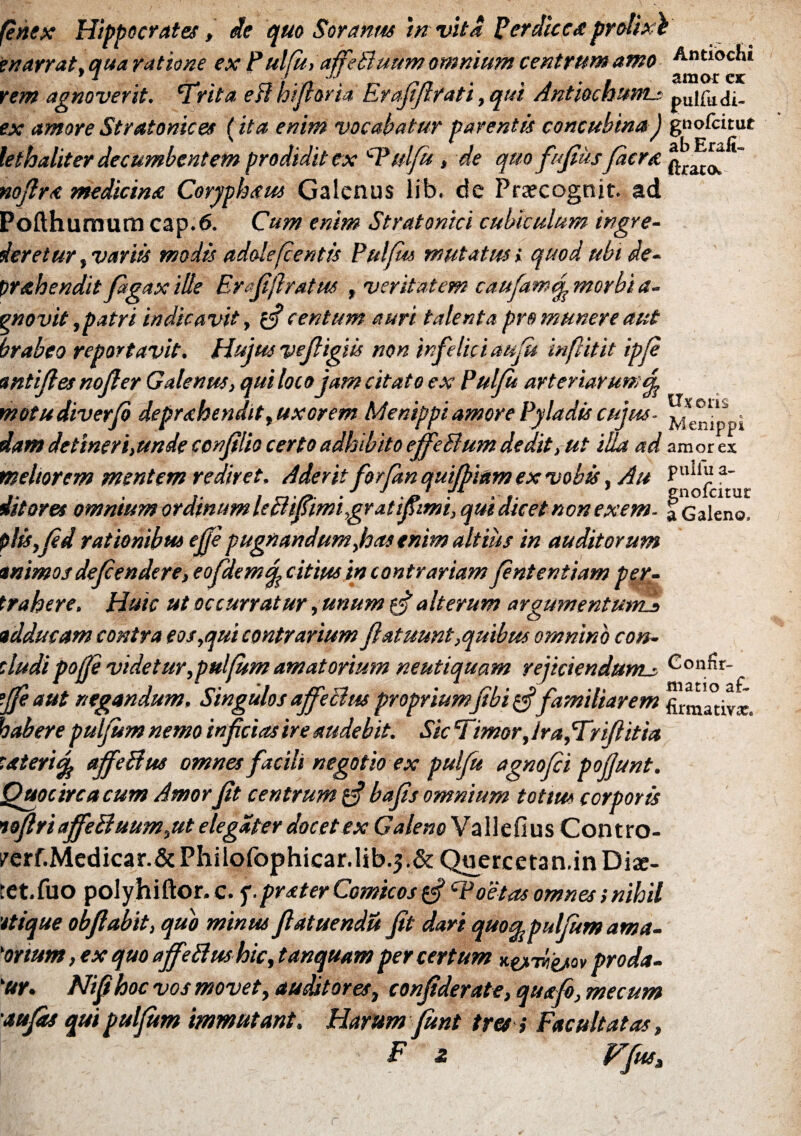 ſenex Hippocrates, de quo Soranus in vitâ Perdiccæ prolixè
enarrat, qua ratione ex Pulſu, affectuum omnium centrum amo
rem agnoverit. Trita eſt hiſtoria Eraſiſtrati, qui Antiochum
ex amore Stratonices (ita enim vocabatur parentis concubina)
lethaliter decumbentem prodidit ex Pulſu, de quo fuſius ſacræ
noſtræ medicinæ Coryphæus Galenus lib. de Præcognit. ad
Poſthumum cap.6. Cum enim Stratonici cubiculum ingre-
deretur, variis modis adoleſcentis Pulſus mutatus; quod ubi de-
præhendit ſagax ille Eraſiſtratus, veritatem cauſamq; morbi a-
gnovit, patri indicavit, & centum auri talenta pro munere aut
brabeo reportavit. Hujus veſtigiis non infelici auſu inſtitit ipſe
antiſtes noſter Galenus, qui loco jam citato ex Pulſu arteriarumq;
motu diverſo depræhendit, uxorem Menippi amore Pyladis cujus-
dam detineri, unde conſilio certo adhibito effectum dedit, ut illa ad
meliorem mentem rediret. Aderit forſan quiſpiam ex vobis, Au
ditores omnium ordinum lectiſſimi, gratiſſimi, qui dicet non exem-
plis, ſed rationibus eſſe pugnandum, has enim altius in auditorum
animos deſcendere, eoſdemq; citius in contrariam ſententiam per-
trahere. Huic ut occurratur, unum & alterum argumentum
adducam contra eos, qui contrarium ſtatuunt, quibus omnino con-
cludi poſſe videtur, pulſum amatorium neutiquam rejiciendum
eſſe aut negandum. Singulos affectus proprium ſibi & familiarem
habere pulſum nemo inficias ire audebit. Sic Timor, Ira, Triſtitia
cæteriq; affectus omnes facili negotio ex pulſu agnoſci poſſunt.
Quocirca cum Amor ſit centrum & baſis omnium totius corporis
noſtri affectuum, ut elegāter docet ex Galeno Valleſius Contro-
verſ. Medicar. & Philoſophicar. lib.3. & Quercetan. in Diæ-
tet. ſuo polyhiſtor. c. 5. præter Comicos & Poëtas omnes; nihil
utique obſtabit, quo minus ſtatuendū ſit dari quoq; pulſum ama-
torium, ex quo affectus hic, tanquam per certum κριτήριον proda-
tur. Niſi hoc vos movet, auditores, conſiderate, quæſo, mecum
cauſas qui pulſum immutant. Harum ſunt tres; Facultatas,
F 2 Vſus,
Antiochi
amor ex
pulſu di-
gnoſcitur
ab Eraſi-
ſtrato.
Uxoris
Menippi
amor ex
pulſu a-
gnoſcitur
à Galeno.
Confir-
matio af-
firmativæ.